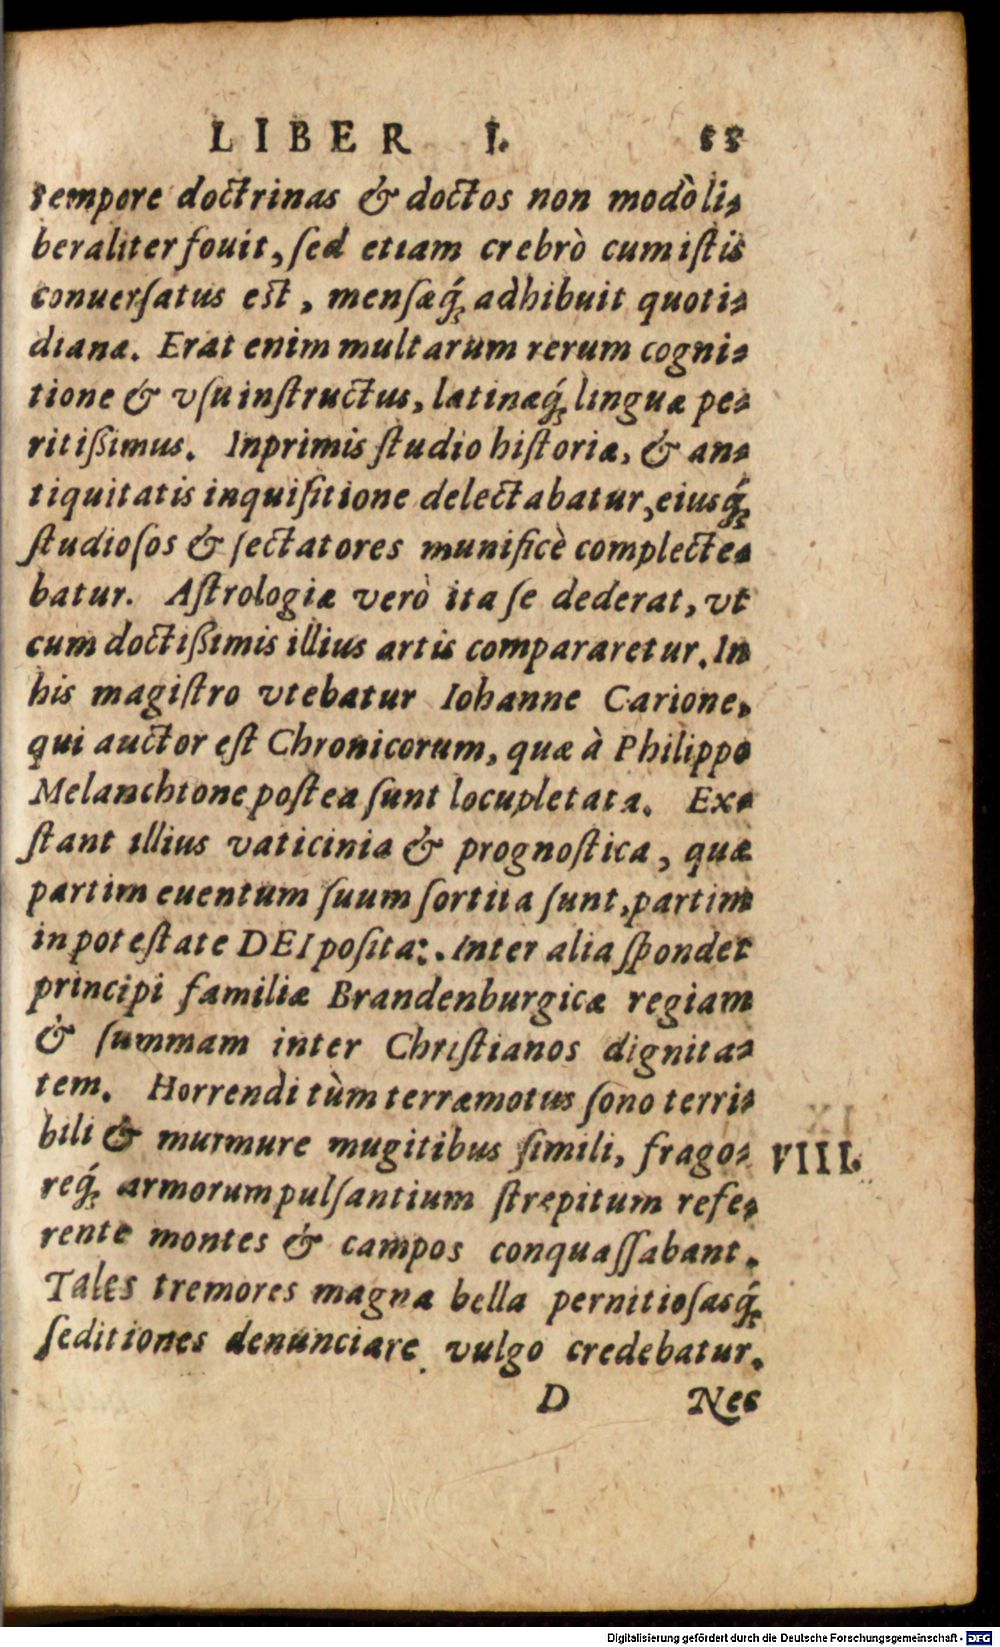 LIBER I. 55
tempore doctrinas & doctos non modò li-
beraliter fouit, ſed etiam crebrò cum iſtis
conuerſatus est, menſæq́; adhibuit quoti-
dianæ. Erat enim multarum rerum cogni-
tione & vſu inſtructus, latinæq́; linguæ pe-
ritißimus. Inprimis ſtudio hiſtoriæ, & an-
tiquitatis inquiſitione delectabatur, eiusq́;
ſtudioſos & ſectatores munificè complecte-
batur. Aſtrologiæ verò ita ſe dederat, vt
cum doctißimis illius artis compararetur. In
his magiſtro vtebatur Iohanne Carione,
qui auctor eſt Chronicorum, quæ à Philippo
Melanchtone poſtea ſunt locupletata. Ex-
ſtant illius vaticinia & prognoſtica, quæ
partim euentum ſuum ſortita ſunt, partim
in poteſtate DEI poſita:. Inter alia ſpondet
principi familiæ Brandenburgicæ regiam
& ſummam inter Chriſtianos dignita-
tem. Horrendi tùm terræmotus ſono terri-
bili & murmure mugitibus ſimili, frago-
VIII.
req́; armorum pulſantium ſtrepitum refe-
rente montes & campos conquaſſabant.
Tales tremores magna bella pernitioſasq́;
ſeditiones denunciare vulgo credebatur.
D Nec
Digitalisierung gefördert durch die Deutsche Forschungsgemeinschaft - DFG